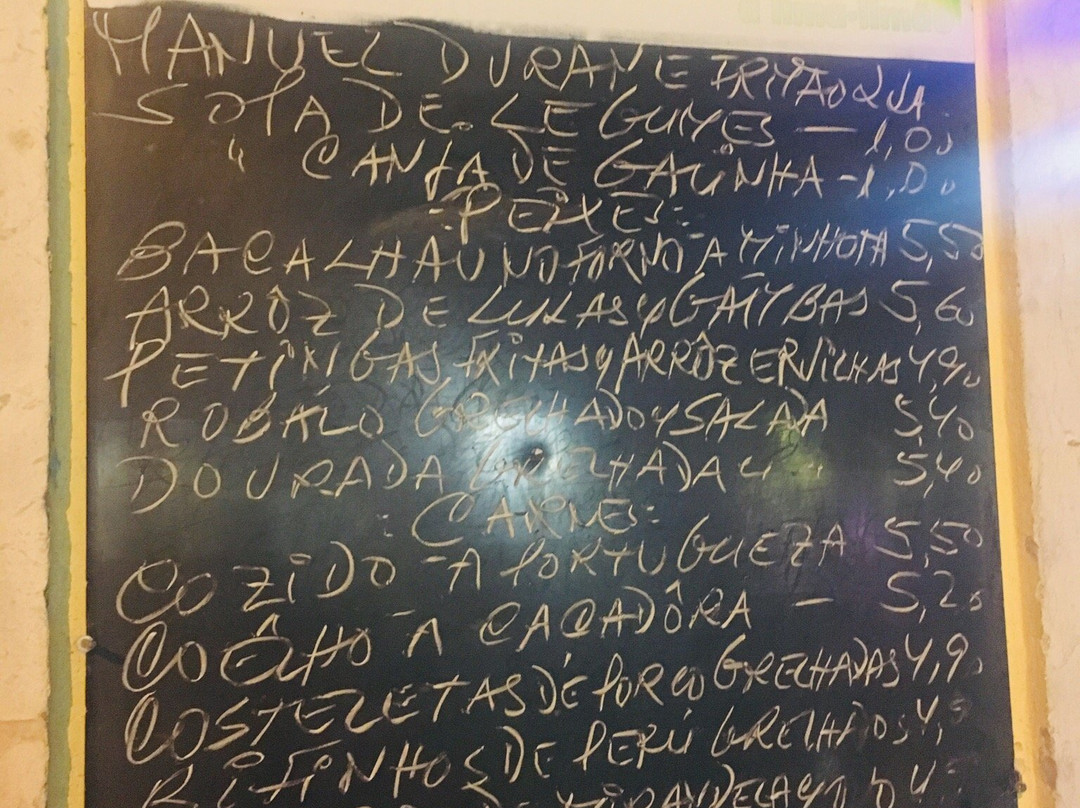 MANUEL DURAN E IRMÃO LDA
SOPA DE LEGUMES — 1,00
" CANJA DE GALINHA - 1,00
- PEIXES -
BACALHAU NO FORNO À MINHOTA 5,50
ARRÔZ DE LULAS Y GAMBAS 5,60
PETINIGAS FRITAS Y ARRÔZ ERVILHAS 4,90
ROBÁLO GRELHADO Y SALADA 5,40
DOURADA GRELHADA Y " 5,40
: CARNES :
COZIDO À PORTUGUEZA 5,50
COÊLHO À CAÇADÔRA — 5,20
COSTELETAS DE PORCO GRELHADAS 4,90
BIFINHOS DE PERÚ GRELHADOS 4,